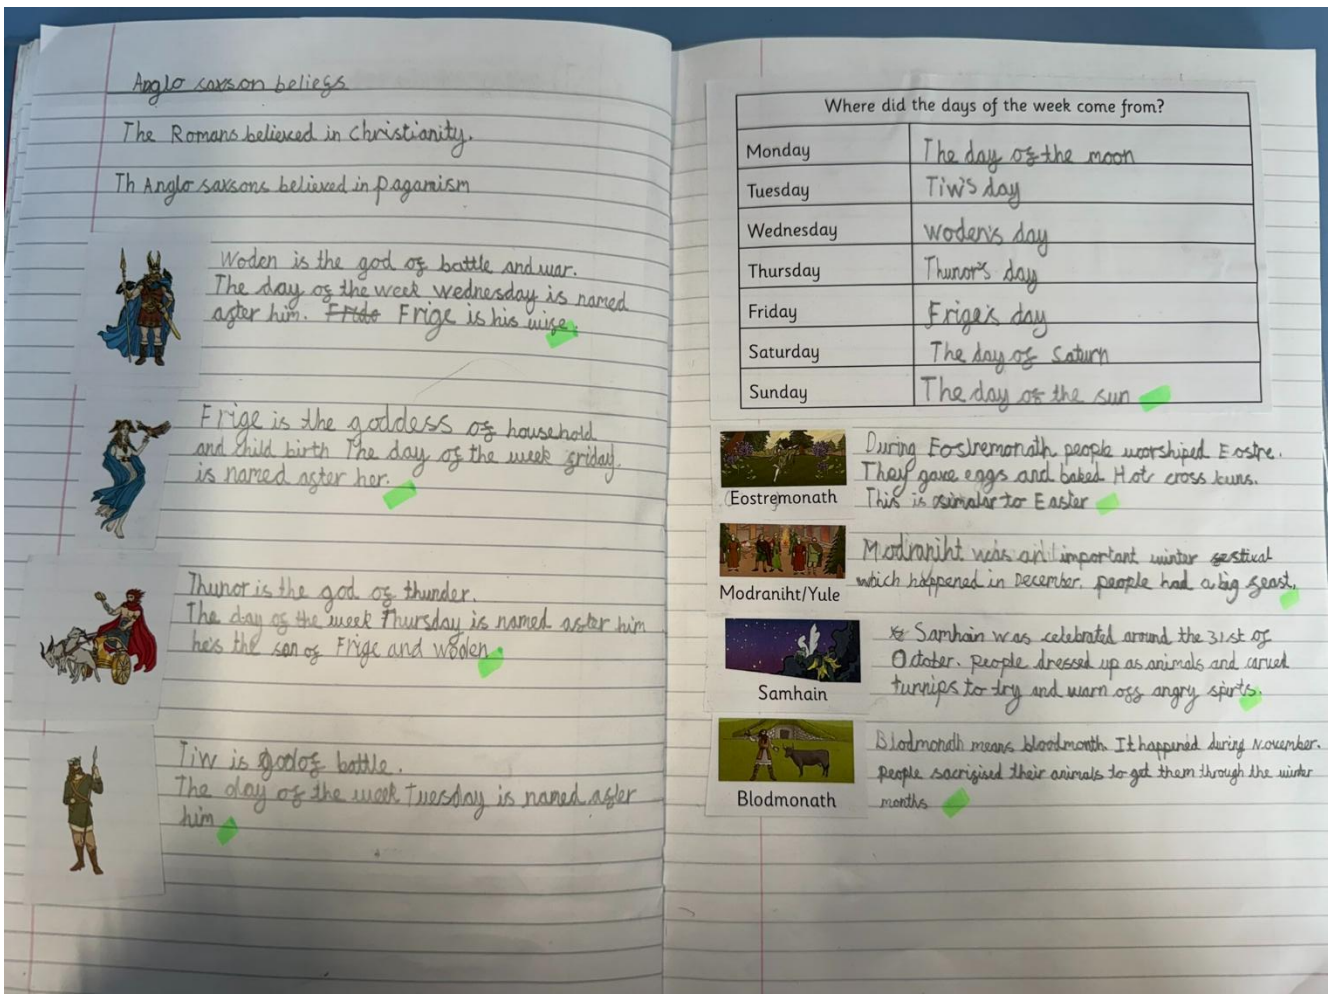 Anglo saxson beliefs
The Romans believed in Christianity.
Th Anglo saxsons believed in paganism
Woden is the god of battle and war.
The day of the week wednesday is named
after him. Frige is his wife.
Frige is the goddess of household
and child birth The day of the week friday
is named after her.
Thunor is the god of thunder.
The day of the week Thursday is named after him
he's the son of Frige and woden.
Tiw is god of battle.
The day of the week Tuesday is named after
him
Where did the days of the week come from?
Monday The day of the moon
Tuesday Tiw's day
Wednesday woden's day
Thursday Thunor's day
Friday Frige's day
Saturday The day of Saturn
Sunday The day of the sun
During Eostremonath people worshiped Eostre.
They gave eggs and baked Hot cross buns.
This is simalar to Easter
Eostremonath
Modraniht was an important winter festival
which happened in December. people had a big feast.
Modraniht/Yule
Samhain was celebrated around the 31st of
October. people dressed up as animals and carved
turnips to try and warn off angry spirts.
Samhain
Blodmonath means bloodmonth. It happened during November.
people sacrifised their animals to get them through the winter
months
Blodmonath